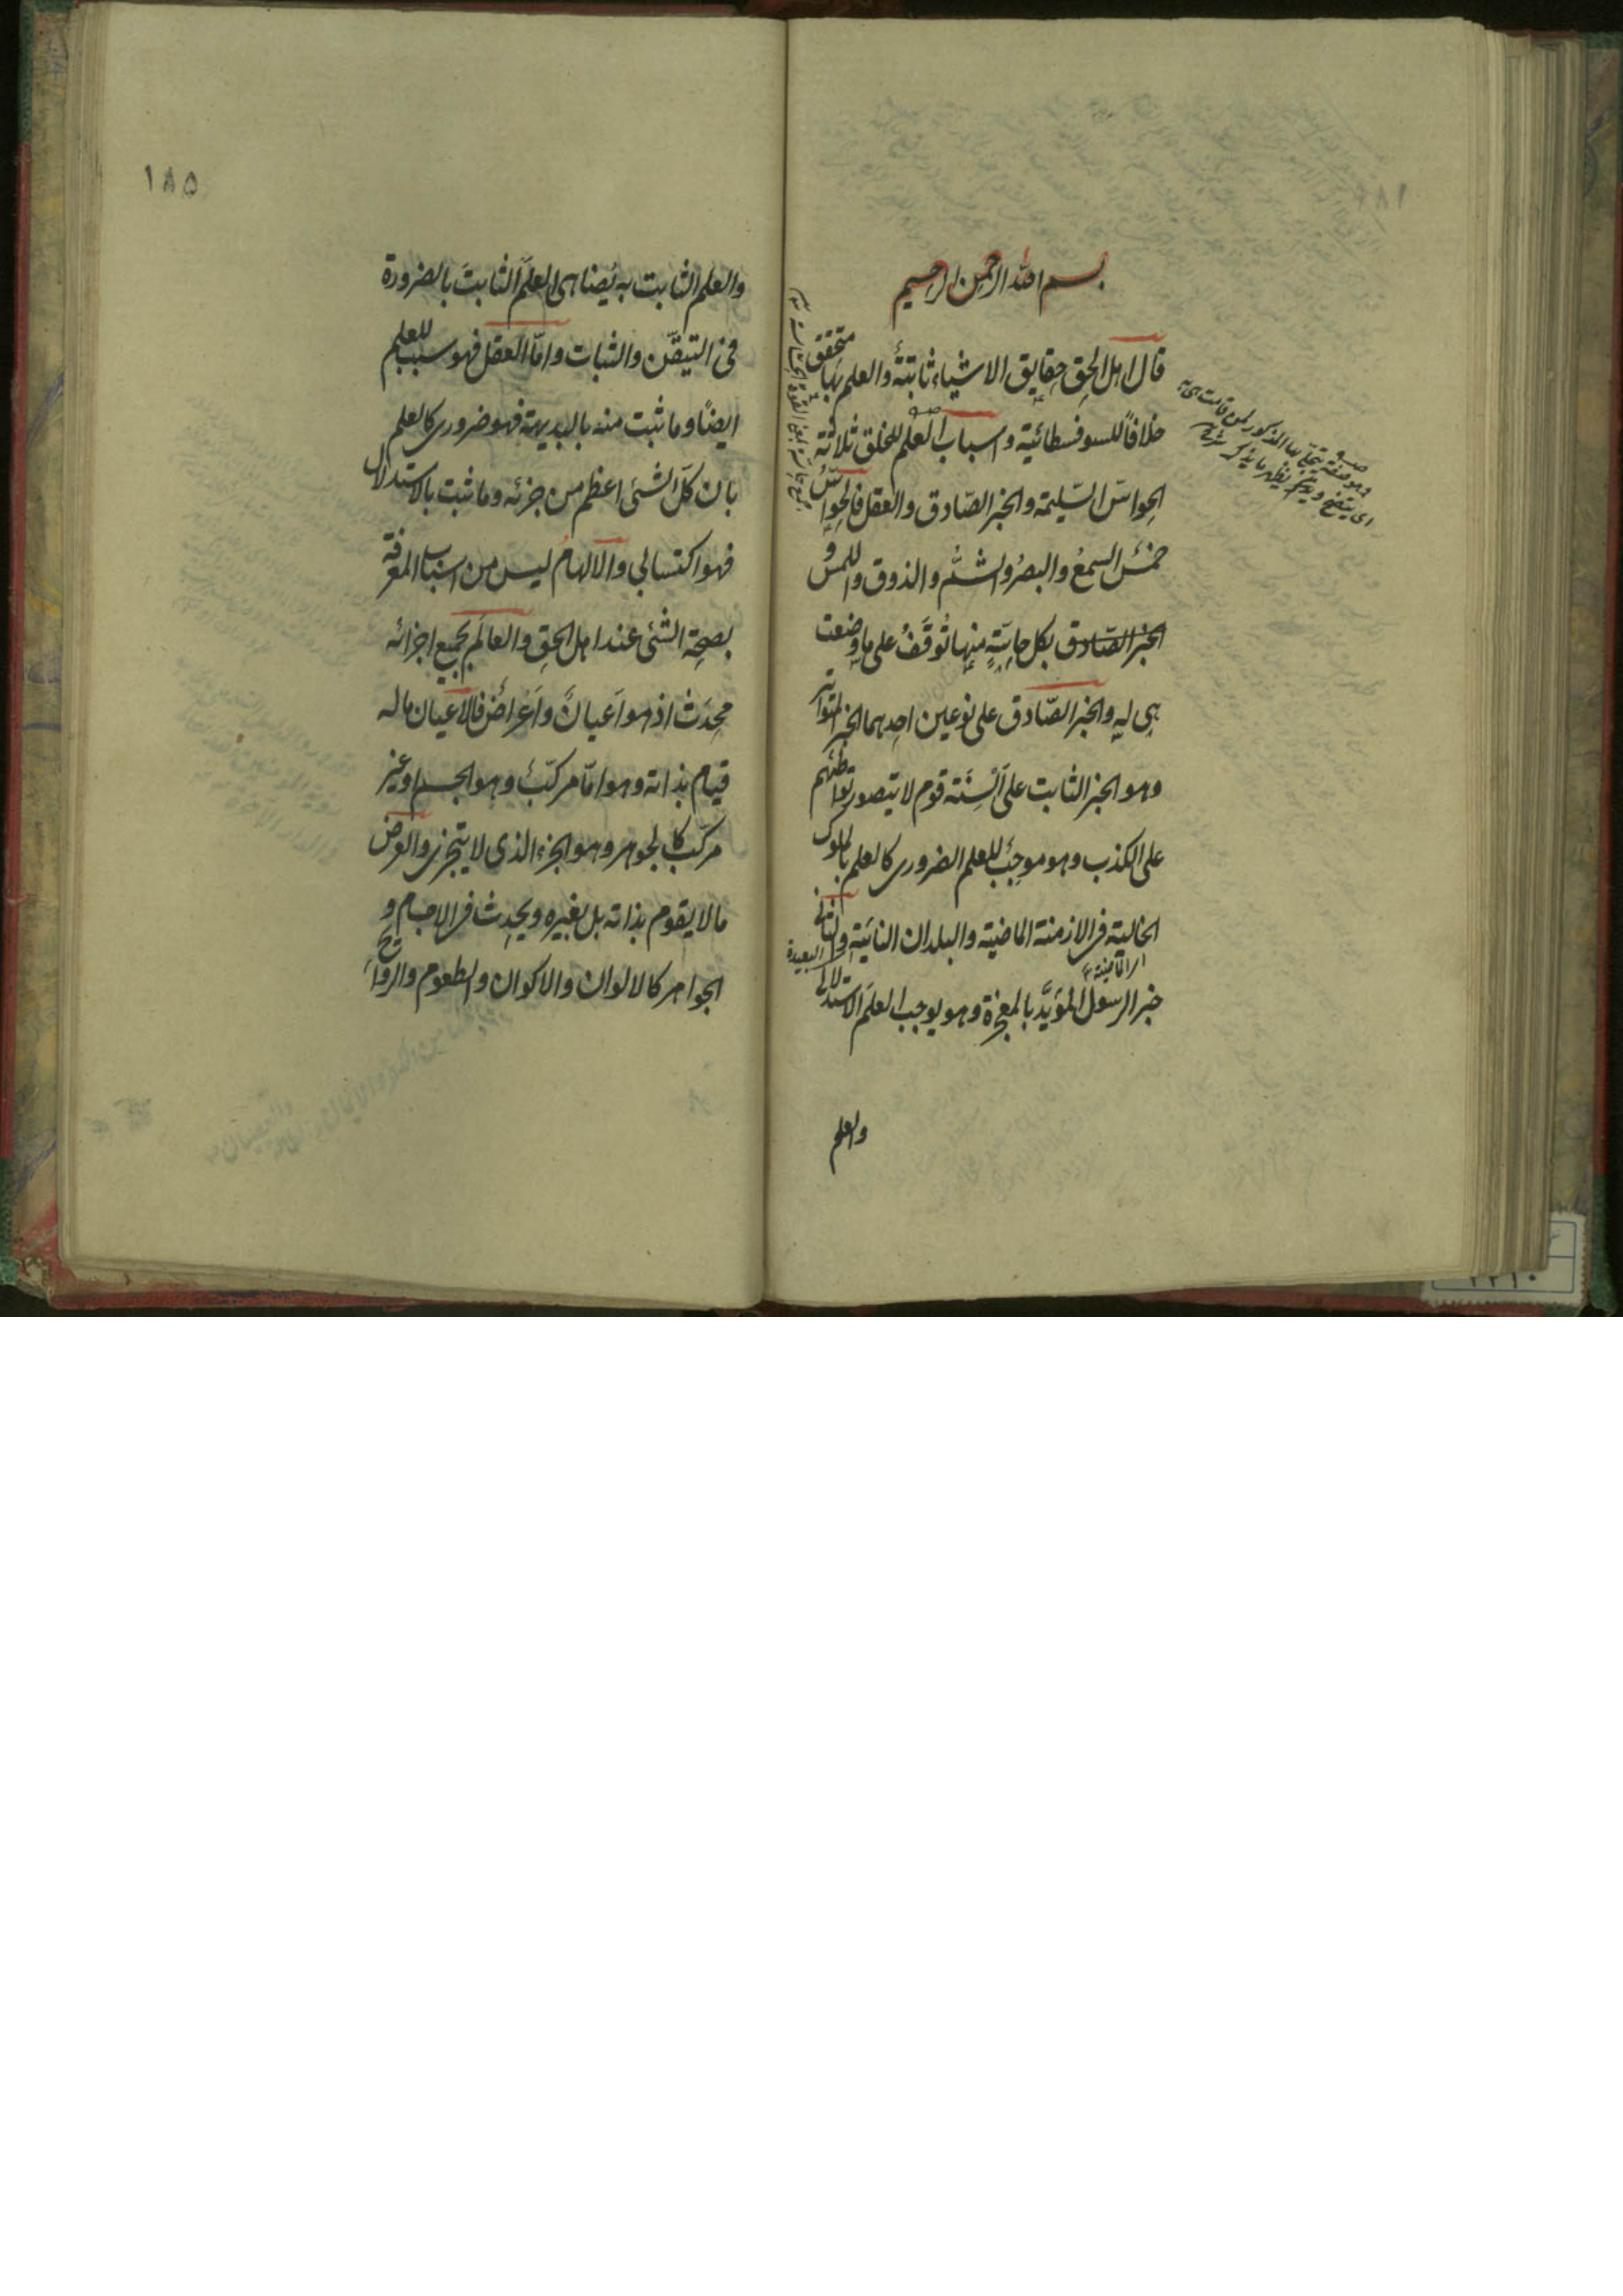 بسم الله الرحمن الرحيم
قال اهل الحق حقايق الاشياء ثابتة والعلم بها متحقق
خلافاً للسوفسطائية واسباب العلم للخلق ثلاثة
الحواس السليمة والخبر الصادق والعقل فالحواس
خمس السمع والبصر والشم والذوق واللمس و
الخبر الصادق بكل حاسة منها توقف على ما وضعت
هي له والخبر الصادق على نوعين احدهما الخبر المتواتر
وهو الخبر الثابت على ألسنة قوم لا يتصور تواطئهم
على الكذب وهو موجب للعلم الضرورى كالعلم بالملوك
الخالية فى الازمنة الماضية والبلدان النائية والثانى
البعيدة
خبر الرسول المؤيد بالمعجزة وهو يوجب العلم الاستدلالى
والعلم
وهو صفة يتجلى بها المذكور لمن قامت هى به
اى يتضح ويظهر ما يذكر
١٨٥
والعلم الثابت به يضاهى العلم الثابت بالضرورة
فى التيقن والثبات واما العقل فهو سبب للعلم
ايضاً وما ثبت منه بالبديهة فهو ضرورى كالعلم
بان كل الشئ اعظم من جزئه وما ثبت بالاستدلال
فهو اكتسابي والالهام ليس من اسباب المعرفة
بصحة الشئ عند اهل الحق والعالم بجميع اجزائه
محدث اذ هو اعيان واعراض فالاعيان ما له
قيام بذاته وهو اما مركب وهو الجسم او غير
مركب كالجوهر وهو الجزء الذى لا يتجزى والعرض
ما لا يقوم بذاته بل بغيره ويحدث فى الاجسام و
الجواهر كالالوان والاكوان والطعوم والروايح